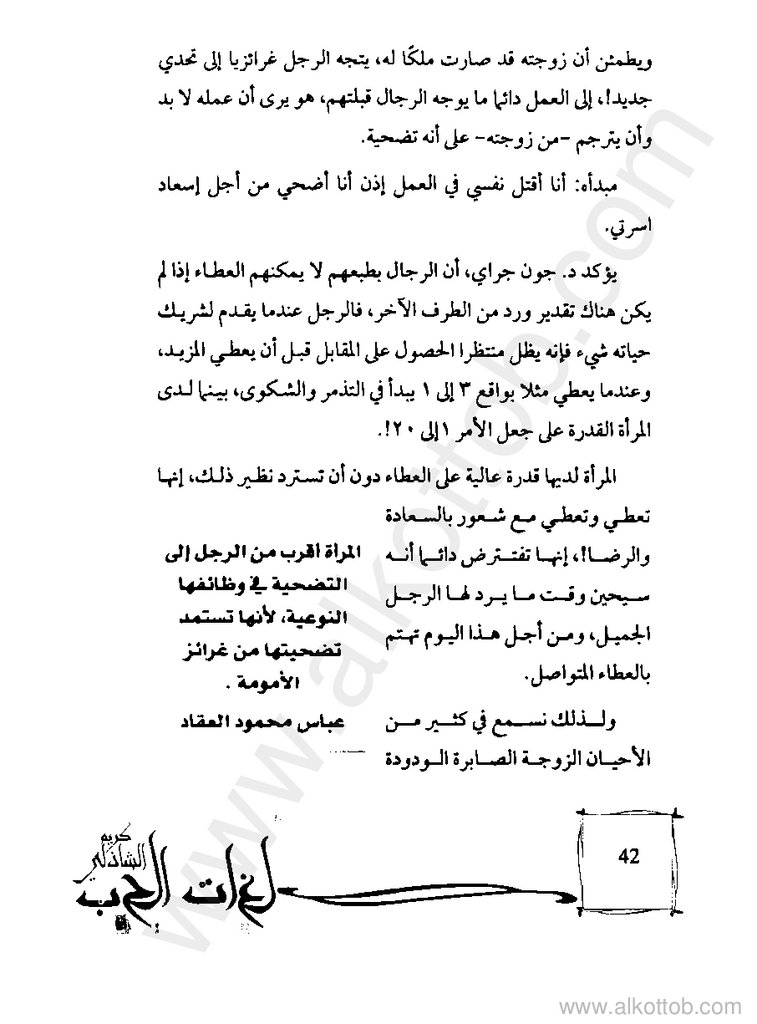 ويطمئن أن زوجته قد صارت ملكًا له، يتجه الرجل غرائزيا إلى تحدي
جديد!، إلى العمل دائما ما يوجه الرجال قبلتهم، هو يرى أن عمله لا بد
وأن يترجم -من زوجته- على أنه تضحية.
مبدأه: أنا أقتل نفسي في العمل إذن أنا أضحي من أجل إسعاد
اسرتي.
يؤكد د. جون جراي، أن الرجال بطبعهم لا يمكنهم العطاء إذا لم
يكن هناك تقدير ورد من الطرف الآخر، فالرجل عندما يقدم لشريك
حياته شيء فإنه يظل منتظرا الحصول على المقابل قبل أن يعطي المزيد،
وعندما يعطي مثلا بواقع ٣ إلى ١ يبدأ في التذمر والشكوى، بينما لدى
المرأة القدرة على جعل الأمر ١ إلى ٢٠!.
المرأة لديها قدرة عالية على العطاء دون أن تسترد نظير ذلك، إنها
تعطي وتعطي مع شعور بالسعادة
والرضا!، إنها تفترض دائما أنه
سيحين وقت ما يرد لها الرجل
الجميل، ومن أجل هذا اليوم تهتم
بالعطاء المتواصل.
ولذلك نسمع في كثير من
الأحيان الزوجة الصابرة الودودة
المرأة أقرب من الرجل إلى
التضحية في وظائفها
النوعية، لأنها تستمد
تضحيتها من غرائز
الأمومة .
عباس محمود العقاد
42
كريم
الشاذلي
لغات الحب
www.alkottob.com
www.alkottob.com